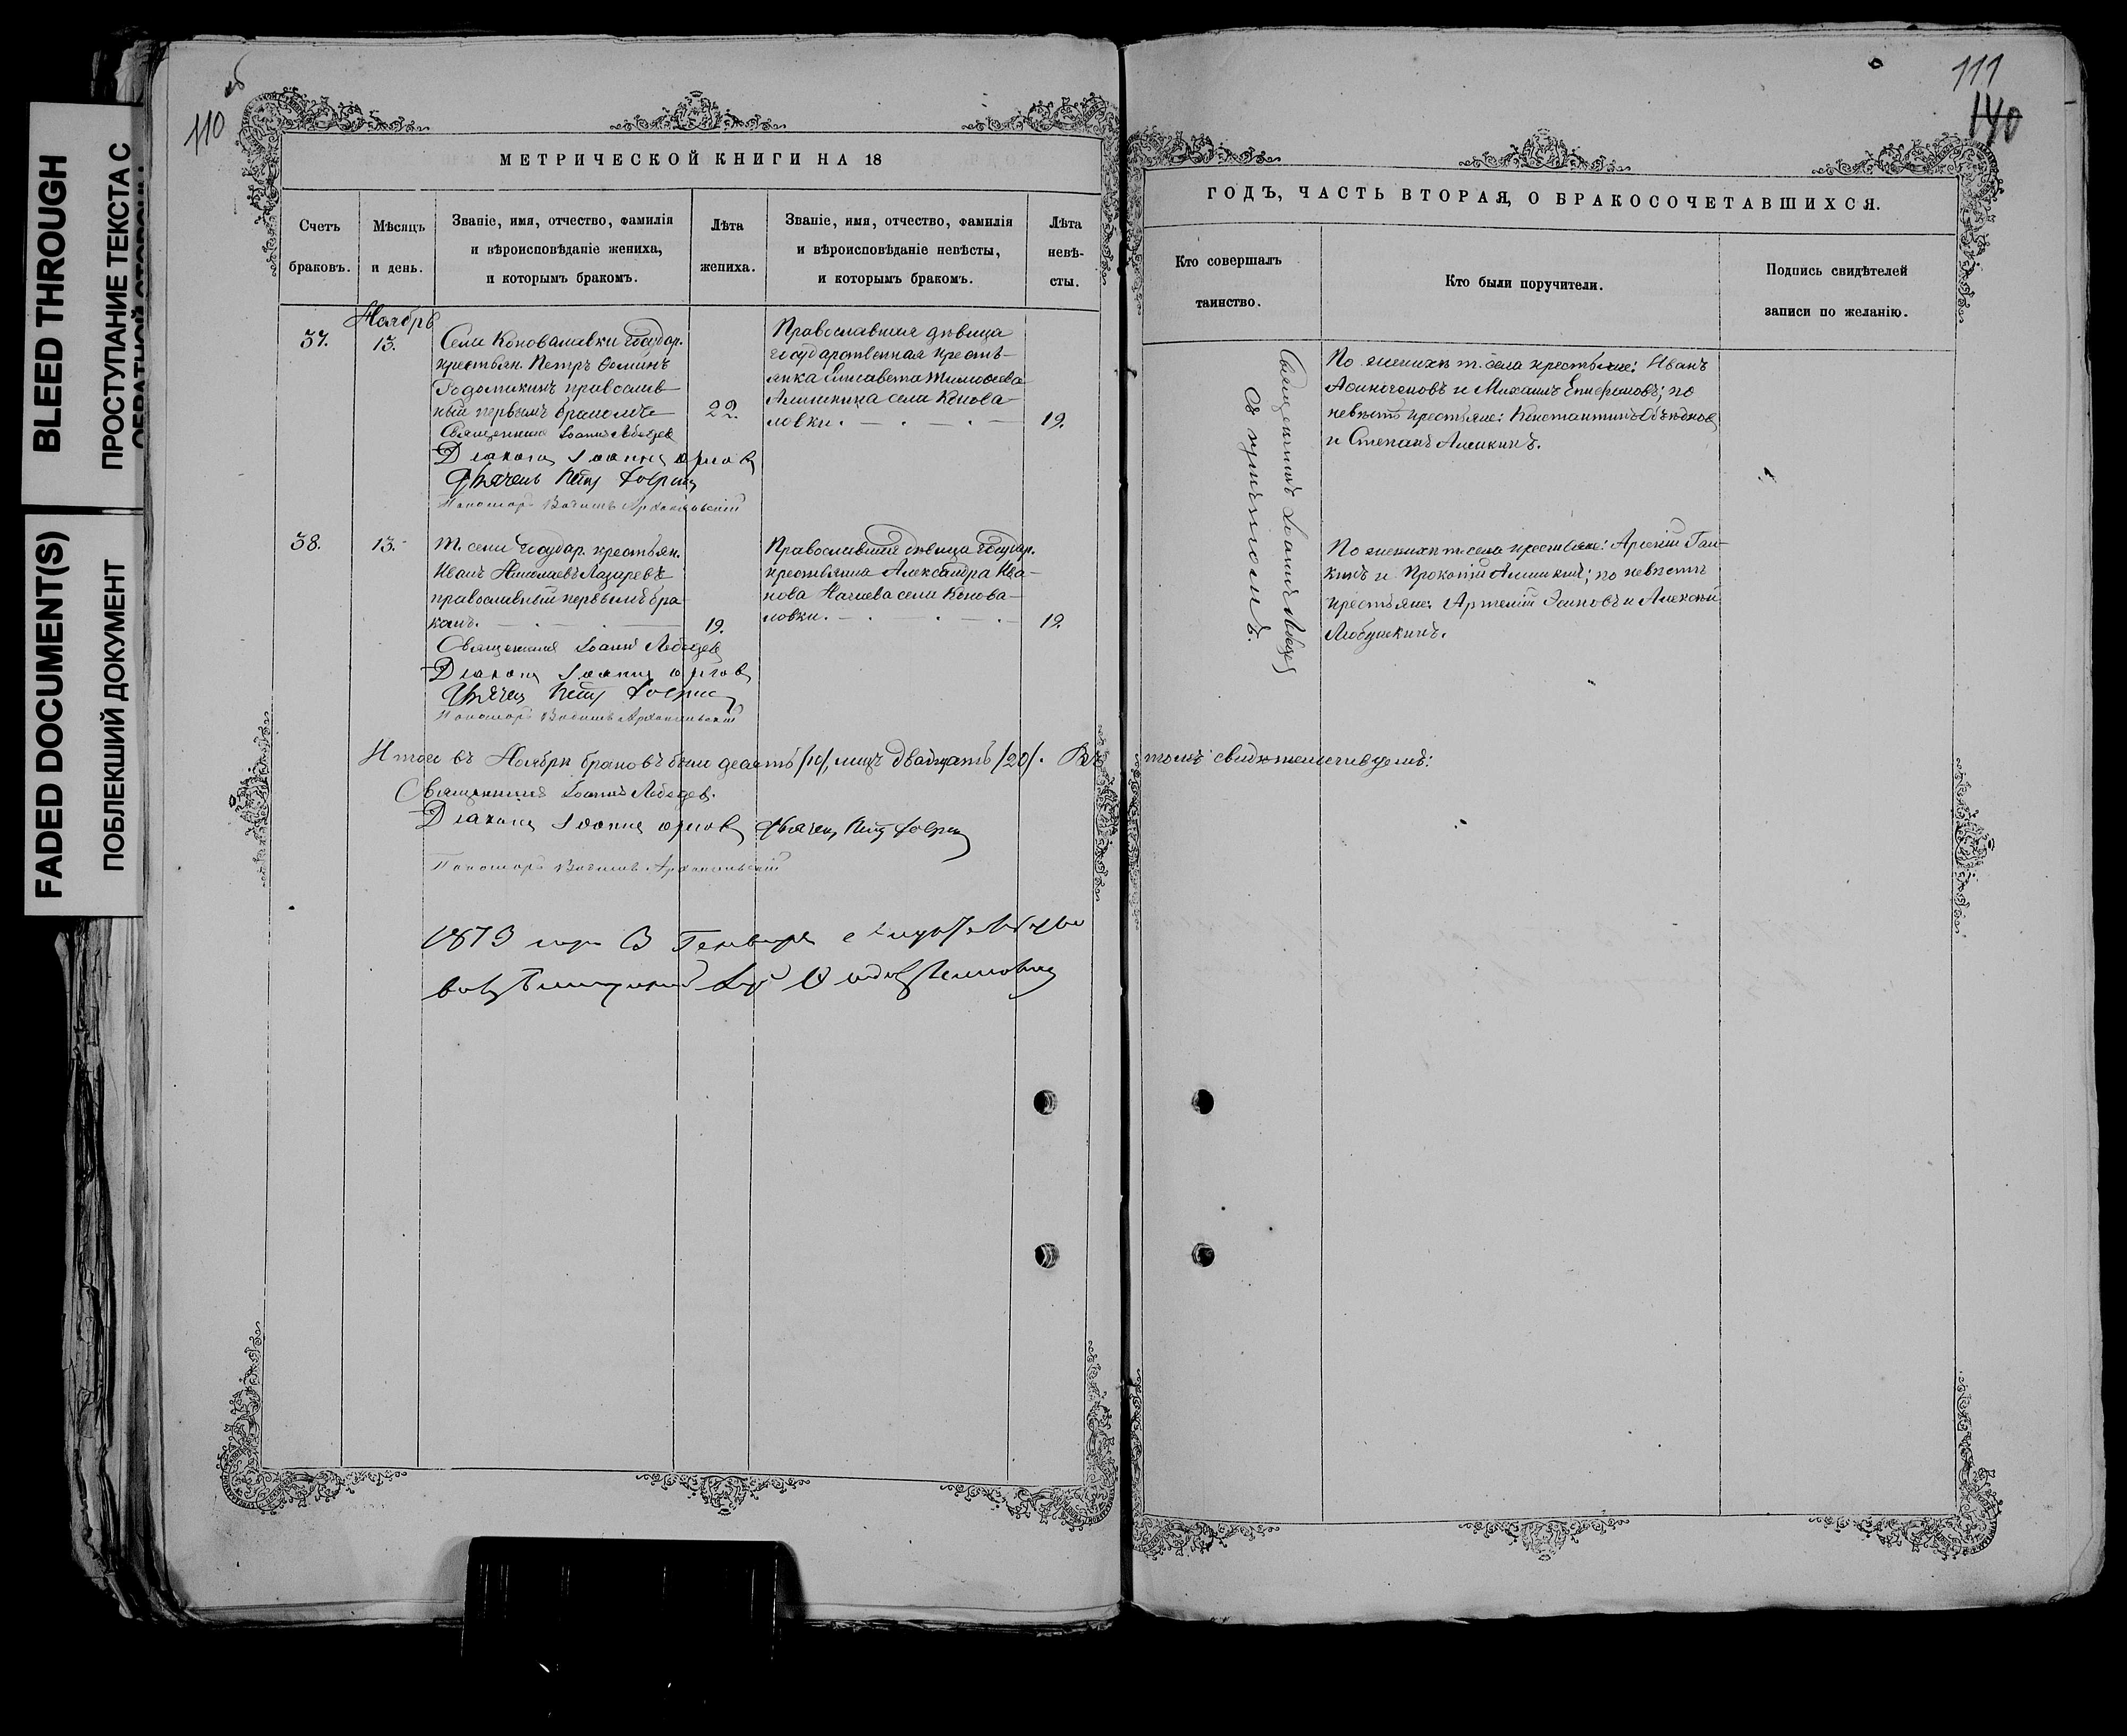 110 об
111
140
BLEED THROUGH
ПРОСТУПАНИЕ ТЕКСТА С
ОБРАТНОЙ СТОРОНЫ
FADED DOCUMENT(S)
ПОБЛЕКШИЙ ДОКУМЕНТ
МЕТРИЧЕСКОЙ КНИГИ НА 18
Счетъ браковъ.
Мѣсяцъ и день.
Званіе, имя, отчество, фамилія
и вѣроисповѣданіе жениха,
и которымъ бракомъ.
Лѣта жениха.
Званіе, имя, отчество, фамилія
и вѣроисповѣданіе невѣсты,
и которымъ бракомъ.
Лѣта невѣ-
сты.
Ноябрь
37.
13.
Села Коноваловки государ.
крестьян. Петръ
православ-
ный первымъ бракомъ
22.
Священникъ Іоаннъ Лебедев
Діаконъ Іоаннъ Орлов
Дьячекъ Петръ
Пономарь Архангельскій
Православная дѣвица
государственная кресть-
янка Елисавета Тимофеева
Алешкина села Конова-
ловки.
19.
38.
13.
Т. села государ. крестьян.
Иванъ Николаевъ Лазаревъ
православный первымъ бра-
комъ.
19.
Священникъ Іоаннъ Лебедев
Діаконъ Іоаннъ Орлов
Дьячекъ Петръ
Пономарь Архангельскій
Православная дѣвица государ.
крестьянка Александра Ива-
нова села Конова-
ловки.
19.
Итого въ Ноябрѣ браковъ было десять /10/, лицъ двадцать /20/. Въ
Священникъ Іоаннъ Лебедев.
Діаконъ Іоаннъ Орлов Дьячекъ Петръ
Пономарь Архангельскій
1879 года 3 Генваря с
ГОДЪ, ЧАСТЬ ВТОРАЯ, О БРАКОСОЧЕТАВШИХСЯ.
Кто совершалъ
таинство.
Кто были поручители.
Подпись свидѣтелей
записи по желанію.
Священникъ Іоаннъ Лебедев
съ причтомъ.
По женихѣ т. села крестьяне: Иванъ
и Михаилъ Епифановъ; по
невѣстѣ крестьяне: Константинъ Объѣдков
и Степанъ Алешкинъ.
По женихѣ т. села крестьяне: Арсеній Гал-
кинъ и Прокопій Алешкинъ; по невѣстѣ
крестьяне: Артемій и Алексѣй
Любушкинъ.
томъ свидѣтельствуемъ: